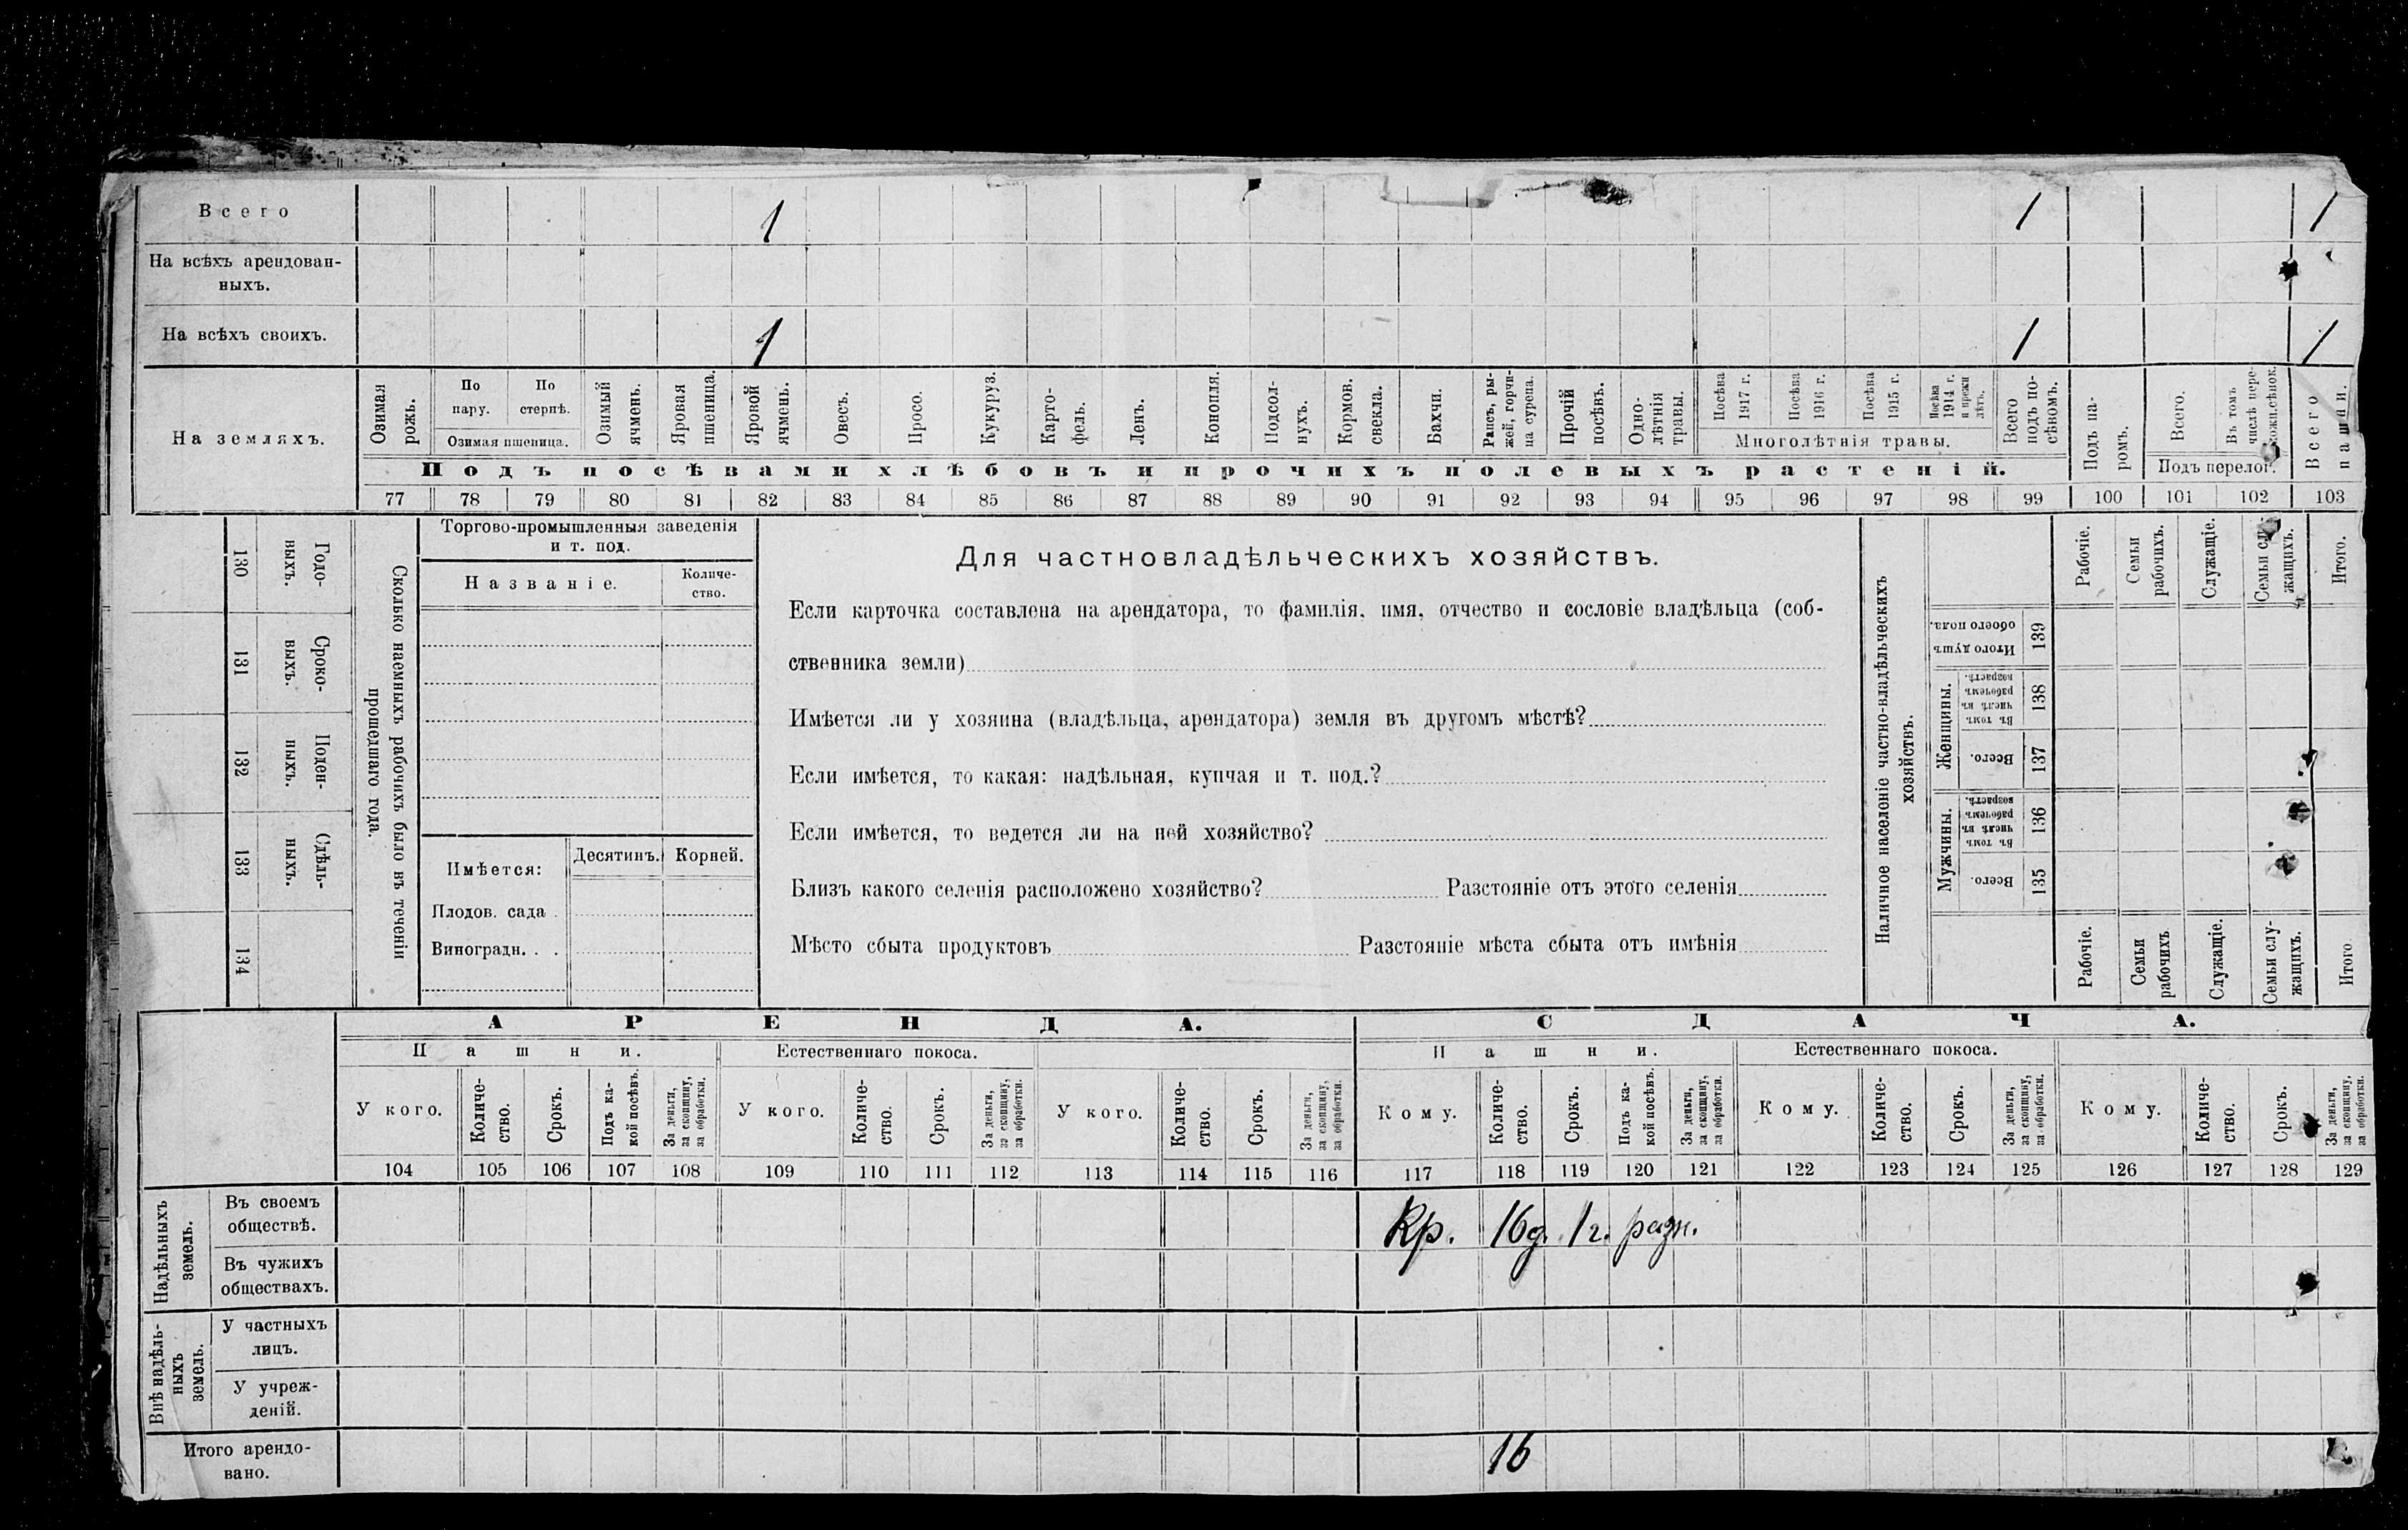 Всего 1 1 1
На всѣхъ арендован-
ныхъ.
На всѣхъ своихъ. 1 1 1
На земляхъ.
Озимая рожь.
По пару.
По стернѣ.
Озимая пшеница.
Озимый ячмень.
Яровая пшеница.
Яровой ячмень.
Овесъ.
Просо.
Кукуруз.
Карто-
фель.
Ленъ.
Конопля.
Подсол-
нухъ.
Кормов. свекла.
Бахчи.
Рапсъ, ры-
жей, горчи-
ца сурепа.
Прочій посѣвъ.
Одно-
лѣтнія травы.
Посѣва 1917 г.
Посѣва 1916 г.
Посѣва 1915 г.
Посѣва 1914 г. и прежн. лѣтъ.
Многолѣтнія травы.
Всего подъ по-
сѣвомъ.
Подъ посѣвами хлѣбовъ и прочихъ полевыхъ растеній.
Подъ па-
ромъ.
Всего.
Въ томъ числѣ пере-
Подъ перелог.
Всего пашни.
77 78 79 80 81 82 83 84 85 86 87 88 89 90 91 92 93 94 95 96 97 98 99 100 101 102 103
130 Годо-
выхъ.
131 Сроко-
выхъ.
132 Поден-
ныхъ.
133 Сдѣль-
ныхъ.
134
Сколько наемныхъ рабочихъ было въ теченіи
прошедшаго года.
Торгово-промышленныя заведенія
и т. под.
Названіе.
Количе-
ство.
Имѣется:
Десятинъ.
Корней.
Плодов. сада .
Виноградн. . .
Для частновладѣльческихъ хозяйствъ.
Если карточка составлена на арендатора, то фамилія, имя, отчество и сословіе владѣльца (соб-
ственника земли)
Имѣется ли у хозяина (владѣльца, арендатора) земля въ другомъ мѣстѣ?
Если имѣется, то какая: надѣльная, купчая и т. под.?
Если имѣется, то ведется ли на ней хозяйство?
Близъ какого селенія расположено хозяйство? Разстояніе отъ этого селенія
Мѣсто сбыта продуктовъ Разстояніе мѣста сбыта отъ имѣнія
Наличное населеніе частно-владѣльческихъ
хозяйствъ.
Рабочіе.
Семьи рабочихъ.
Служащіе.
Семьи слу-
жащихъ.
Итого.
Итого душъ обоего пола. 139
Женщины.
Въ томъ числѣ въ рабочемъ возрастѣ. 138
Всего. 137
Мужчины.
Въ томъ числѣ въ рабочемъ возрастѣ. 136
Всего. 135
Рабочіе.
Семьи рабочихъ
Служащіе.
Семьи слу-
жащихъ.
Итого
АРЕНДА.
СДАЧА.
Пашни.
Естественнаго покоса.
Пашни.
Естественнаго покоса.
У кого.
Количе-
ство.
Срокъ.
Подъ ка-
кой посѣвъ.
За деньги, за скопщину, за обработки.
У кого.
Количе-
ство.
Срокъ.
За деньги, за скопщину, за обработки.
У кого.
Количе-
ство.
Срокъ.
За деньги, за скопщину, за обработки.
Кому.
Количе-
ство.
Срокъ.
Подъ ка-
кой посѣвъ.
За деньги, за скопщину, за обработки.
Кому.
Количе-
ство.
Срокъ.
За деньги, за скопщину, за обработки.
Кому.
Количе-
ство.
Срокъ.
За деньги, за скопщину, за обработки.
104 105 106 107 108 109 110 111 112 113 114 115 116 117 118 119 120 121 122 123 124 125 126 127 128 129
Надѣльныхъ земель.
Въ своемъ
обществѣ.
Кр. 16д. 1г. разн.
Въ чужихъ
обществахъ.
Внѣ надѣль-
ныхъ земель.
У частныхъ
лицъ.
У учреж-
деній.
Итого арендо-
вано.
16